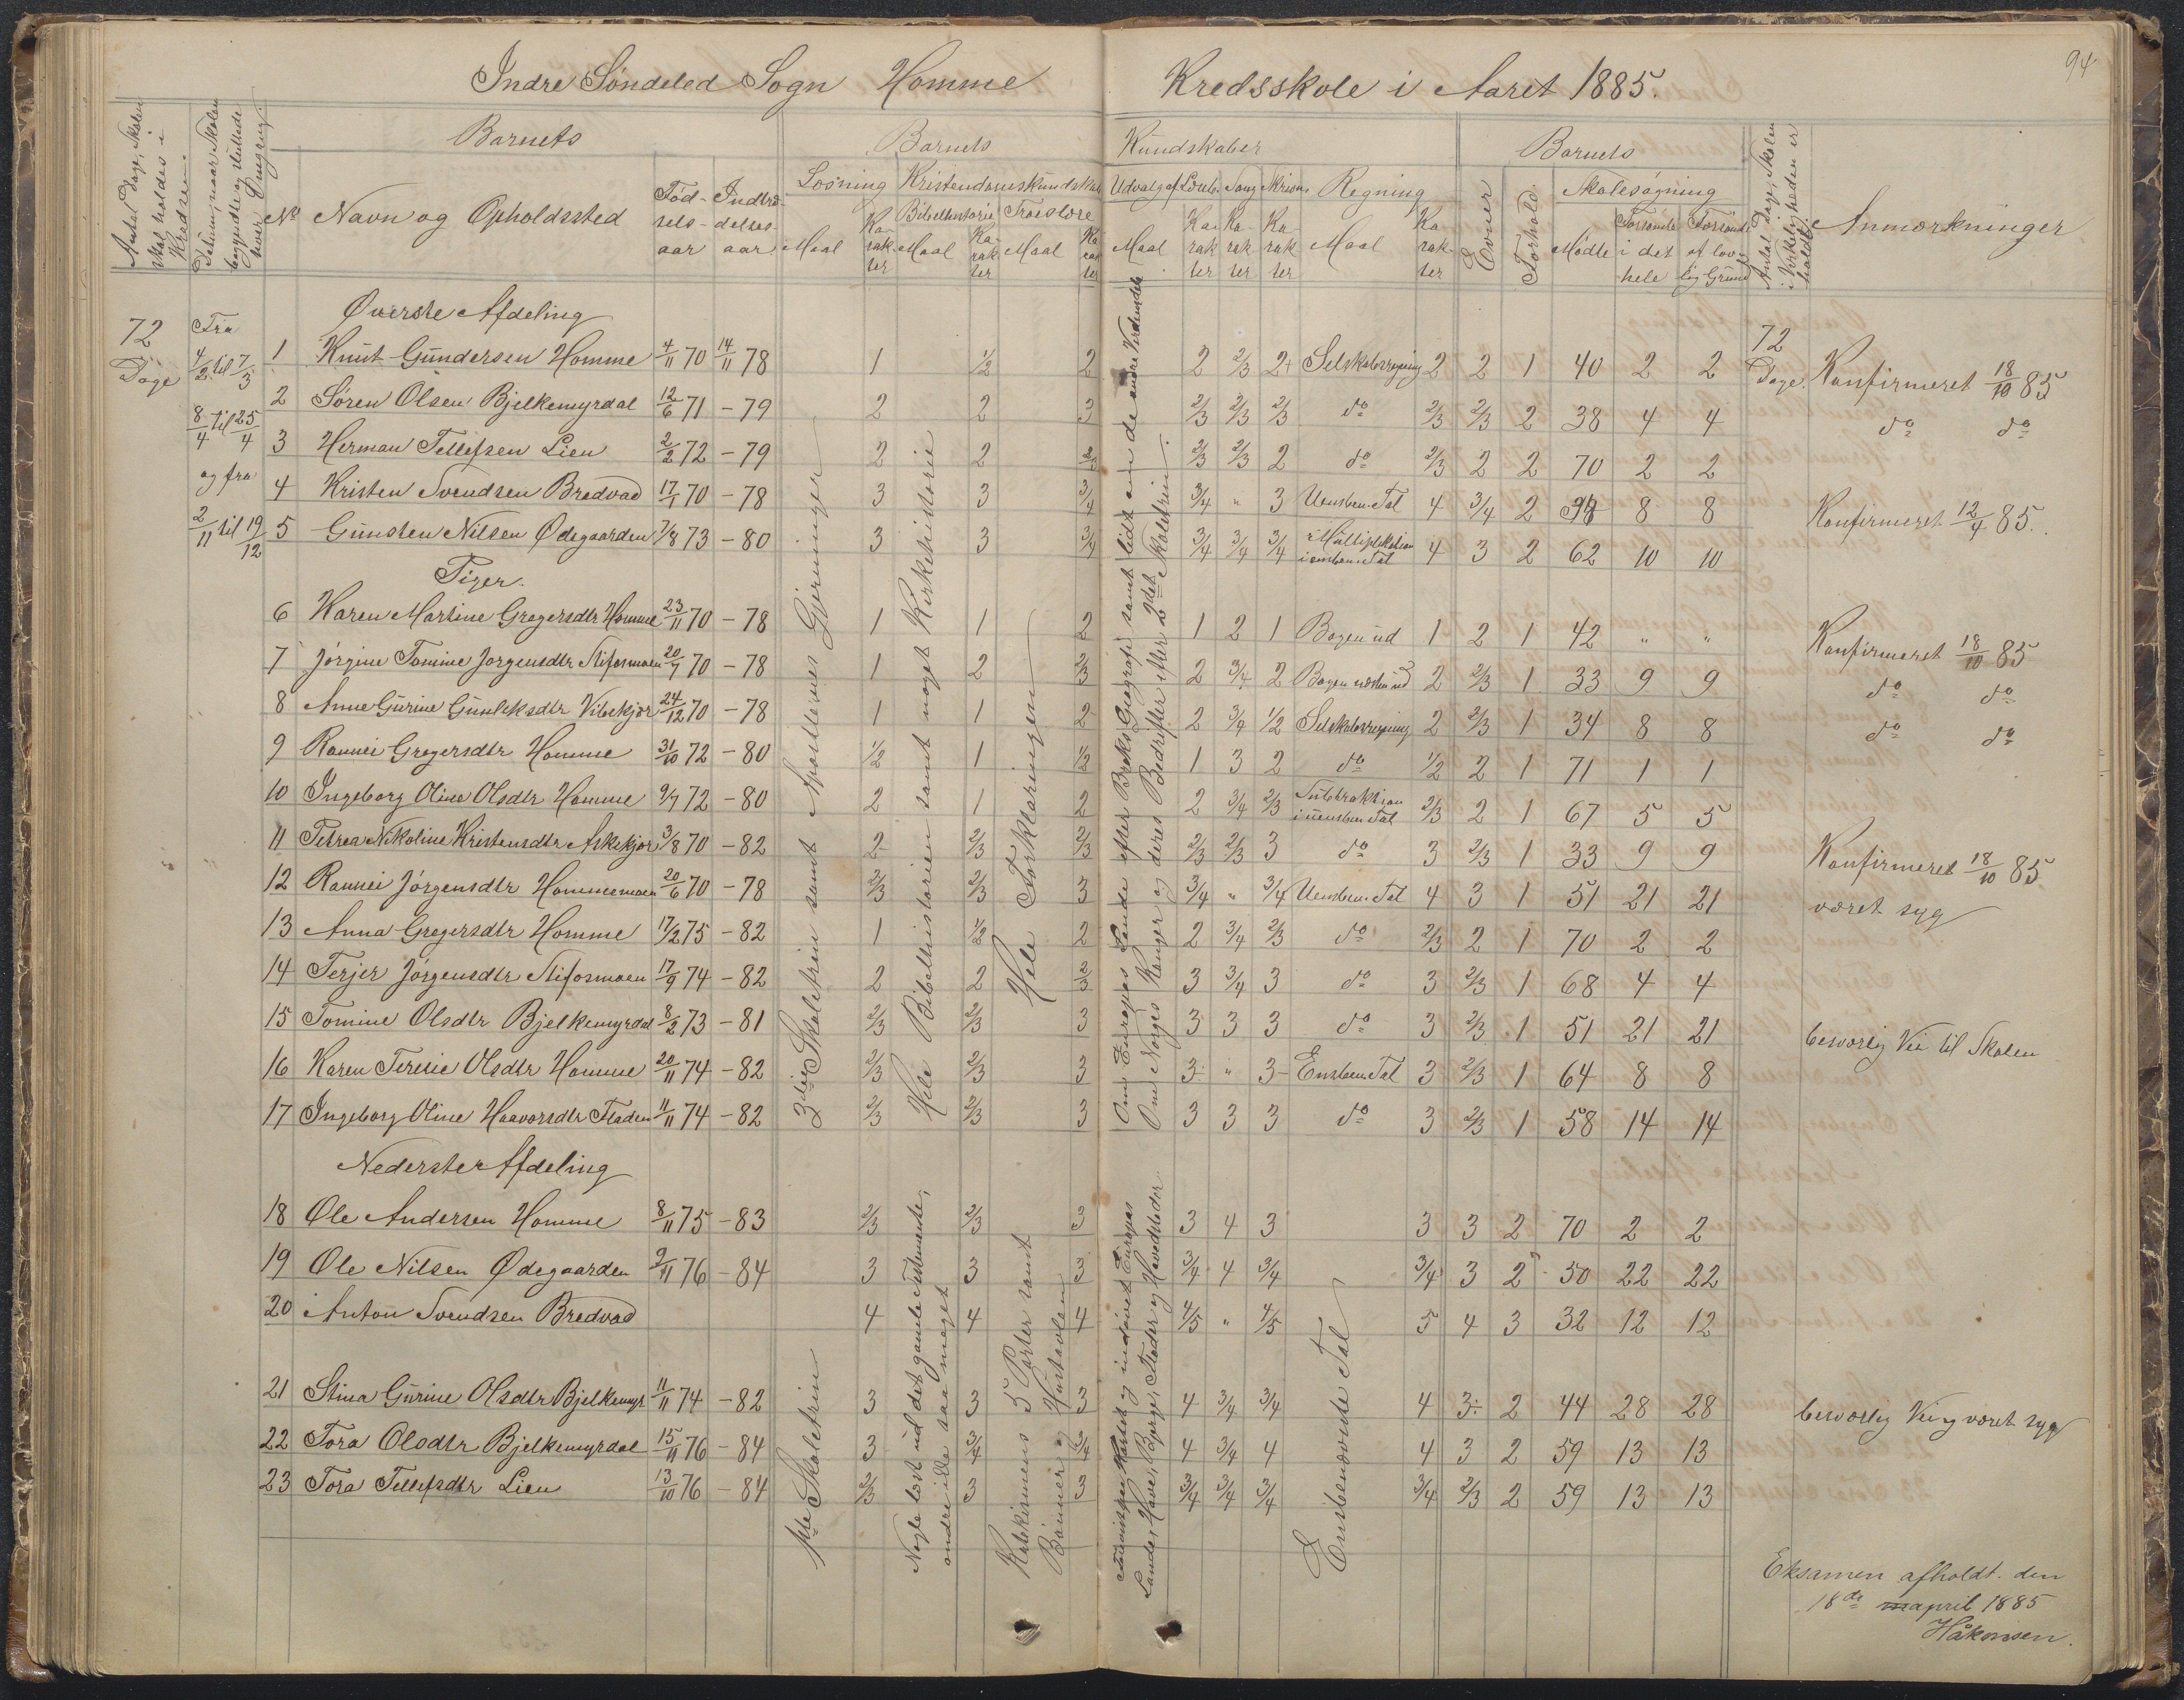 94
Indre Søndeled Sogn Homme Kredsskole i Aaret 1885.
Antal Dage, Skolen skal holdes i Kredsen.
Datum, naar Skolen begyndte og sluttede hver Omgang.
Barnets
Barnets Kundskaber
Barnets
Antal Dage, Skolen i Virkeligheden er holdt.
Anmærkninger
No Navn og Opholdssted Fødselsaar Indtrædelsesaar
Læsning Kristendomskundskab Udvalg af Læseb. Sang Skrivn. Regning Evner Forhold Skolesøgning
Bibelhistorie Troeslære
Maal Karakter Maal Karakter Maal Karakter Maal Karakter Karakter Karakter Maal Karakter Mødte Forsømte i det hele Forsømte af lovlig Grund
Øverste Afdeling
72 Dage
Fra 4/2 til 7/3
8/4 til 25/4
og fra
2/11 til 19/12
72 Dage.
1 Knut Gundersen Homme 4/11 70 14/11 78 1 1/2 2 2 2/3 2+ Selskabsregning 2 2 1 40 2 2 Konfirmeret 18/10 85
2 Søren Olsen Bjelkemyrdal 12/6 71 - 79 2 2 3 2/3 2/3 2/3 do 2/3 2/3 2 38 4 4 do do
3 Herman Tellefsen Lien 2/2 72 - 79 2 2 2/3 2/3 2/3 2 do 2/3 2 2 70 2 2
4 Kristen Svendsen Bredvad 17/1 70 - 78 3 3 3/4 3/4 " 3 Uensben. Tal 4 3/4 2 34 8 8 Konfirmeret 12/4 85.
5 Gunsten Nilsen Ødegaarden 7/8 73 - 80 3 3 3/4 3/4 3/4 3/4 Multiplikation i ensben. Tal 4 3 2 62 10 10
Piger.
6 Karen Martine Gregersdtr Homme 23/11 70 - 78 1 1 2 1 2 1 Bogen ud 1 2 1 42 " " Konfirmeret 18/10 85
7 Jørgine Tomine Jørgensdtr Stifosmoen 20/7 70 - 78 1 2 2/3 2 3/4 2 Bogen næsten ud 2 2/3 1 33 9 9 do do
8 Anne Gurine Gunleksdtr Vibekjær 24/12 70 - 78 1 1 2 2 3/4 1/2 Selskabsregning 2 2/3 1 34 8 8 do do
9 Rannei Gregersdtr Homme 31/10 72 - 80 1/2 1 1/2 1 3 2 do 1/2 2 1 71 1 1
10 Ingeborg Oline Olsdtr Homme 9/7 72 - 80 2 1 2 2 3/4 2/3 Subtraktion i uensben Tal 2/3 2 1 67 5 5
11 Petrea Nikoline Kristensdtr Askekjær 3/8 70 - 82 2 2/3 2/3 2/3 2/3 3 do 3 2/3 1 33 9 9 Konfirmeret 18/10 85
12 Rannei Jørgensdtr Hommemoen 20/6 70 - 78 2/3 2/3 3 3/4 " 3/4 Uensben. Tal 4 3 1 51 21 21 været syg
13 Anna Gregersdtr Homme 17/2 75 - 82 1 1/2 2 2 3/4 2/3 do 2/3 2 1 70 2 2
14 Terjer Jørgensdtr Stifosmoen 17/9 74 - 82 2 2 2/3 3 3/4 3 do 3 2/3 1 68 4 4
15 Tomine Olsdtr Bjelkemyrdal 8/2 73 - 81 2/3 2/3 3 3 3 3 do 3 2/3 1 51 21 21 besværlig Vei til Skolen
16 Karen Teresie Olsdtr Homme 20/11 74 - 82 2/3 2/3 3 3 " 3 Ensben Tal 3 2/3 1 64 8 8
17 Ingeborg Oline Haavorsdtr Fladen 11/11 74 - 82 2/3 2/3 3 3 3 3 do 3 2/3 1 58 14 14
3die Skoletrin samt Apostlernes Gjerninger
Hele Bibelhistorien samt noget Kirkehistorie
Hele Forklaringen
Om Europas Lande efter Broks Geografi samt lidt om de andre Verdensdele
Om Norges Konger og deres Bedrifter efter 2det Skoletrin.
Nederste Afdeling
18 Ole Andersen Homme 8/11 75 - 83 2/3 2/3 3 3 4 3 3 3 2 70 2 2
19 Ole Nilsen Ødegaarden 9/11 76 - 84 3 3 3 3/4 4 3/4 3/4 3 2 50 22 22
20 Anton Svendsen Bredvad 4 4 4 4/5 " 4/5 5 4 3 32 12 12
21 Stina Gurine Olsdtr Bjelkemyr 11/11 74 - 82 3 3 3 4 3/4 3/4 4 3 2 44 28 28 besværlig Vei og været syg
22 Tora Olsdtr Bjelkemyrdal 15/11 76 - 84 3 3/4 3/4 4 3/4 4 4 3 2 59 13 13
23 Tora Tellefsdtr Lien 13/10 76 - 84 2/3 3 3 3/4 3/4 3/4 3/4 2/3 2 59 13 13
1ste Skoletrin
Nogle læst ud det gamle Testamente, andre ikke saa meget
Katekismens 5 Parter samt Bønner og Hustavlen
Lande, Have, Bjerge, Floder og Hovedstæder
Ensbenævnte Tal
Eksamen afholdt den
18de april 1885
Håkonsen.